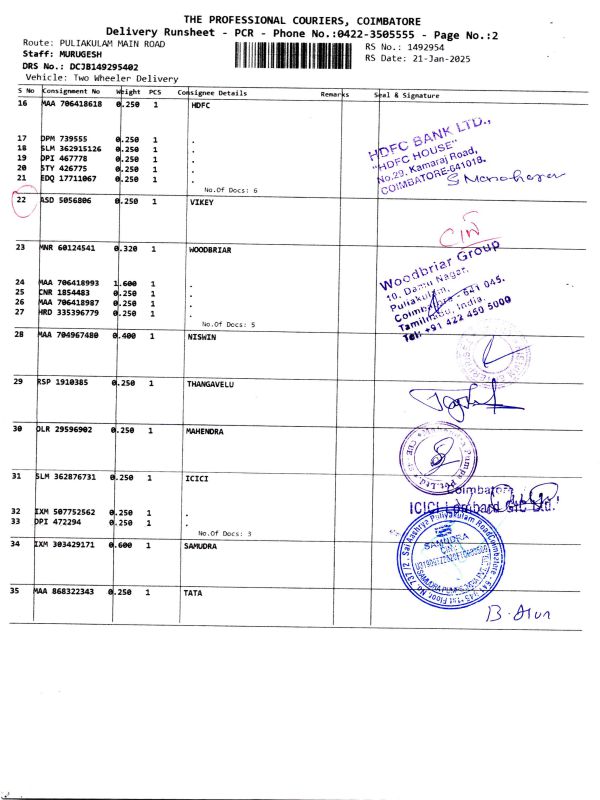 THE PROFESSIONAL COURIERS, COIMBATORE
Delivery Runsheet - PCR - Phone No.:0422-3505555 - Page No.:2
Route: PULIAKULAM MAIN ROAD
RS No.: 1492954
Staff: MURUGESH
RS Date: 21-Jan-2025
DRS No.: DCJB149295402
Vehicle: Two Wheeler Delivery
S No Consignment No Weight PCS Consignee Details Remarks Seal & Signature
16 MAA 706418618 0.250 1 HDFC
17 DPM 739555 0.250 1 .
18 SLM 362915126 0.250 1 .
19 DPI 467778 0.250 1 .
20 STY 426775 0.250 1 .
21 EDQ 17711067 0.250 1 .
No.Of Docs: 6
HDFC BANK LTD.,
"HDFC HOUSE"
No.29, Kamaraj Road,
COIMBATORE-641018.
S Manohar
22 ASD 5056806 0.250 1 VIKEY
23 MNR 60124541 0.320 1 WOODBRIAR
24 MAA 706418993 1.600 1 .
25 CNR 1854483 0.250 1 .
26 MAA 706418987 0.250 1 .
27 HRD 335396779 0.250 1 .
No.Of Docs: 5
Woodbriar Group
10, Damu Nagar,
Puliakulam,
Coimbatore - 641 045.
Tamilnadu, India.
Tel: +91 422 450 5000
28 MAA 704967480 0.400 1 NISWIN
29 RSP 1910385 0.250 1 THANGAVELU
30 DLR 29596902 0.250 1 MAHENDRA
31 SLM 362876731 0.250 1 ICICI
32 IXM 507752562 0.250 1 .
33 DPI 472294 0.250 1 .
No.Of Docs: 3
Coimbatore
ICICI Lombard GIC Ltd.
34 IXM 303429171 0.600 1 SAMUDRA
SAMUDRA
35 MAA 868322343 0.250 1 TATA
B. Arun